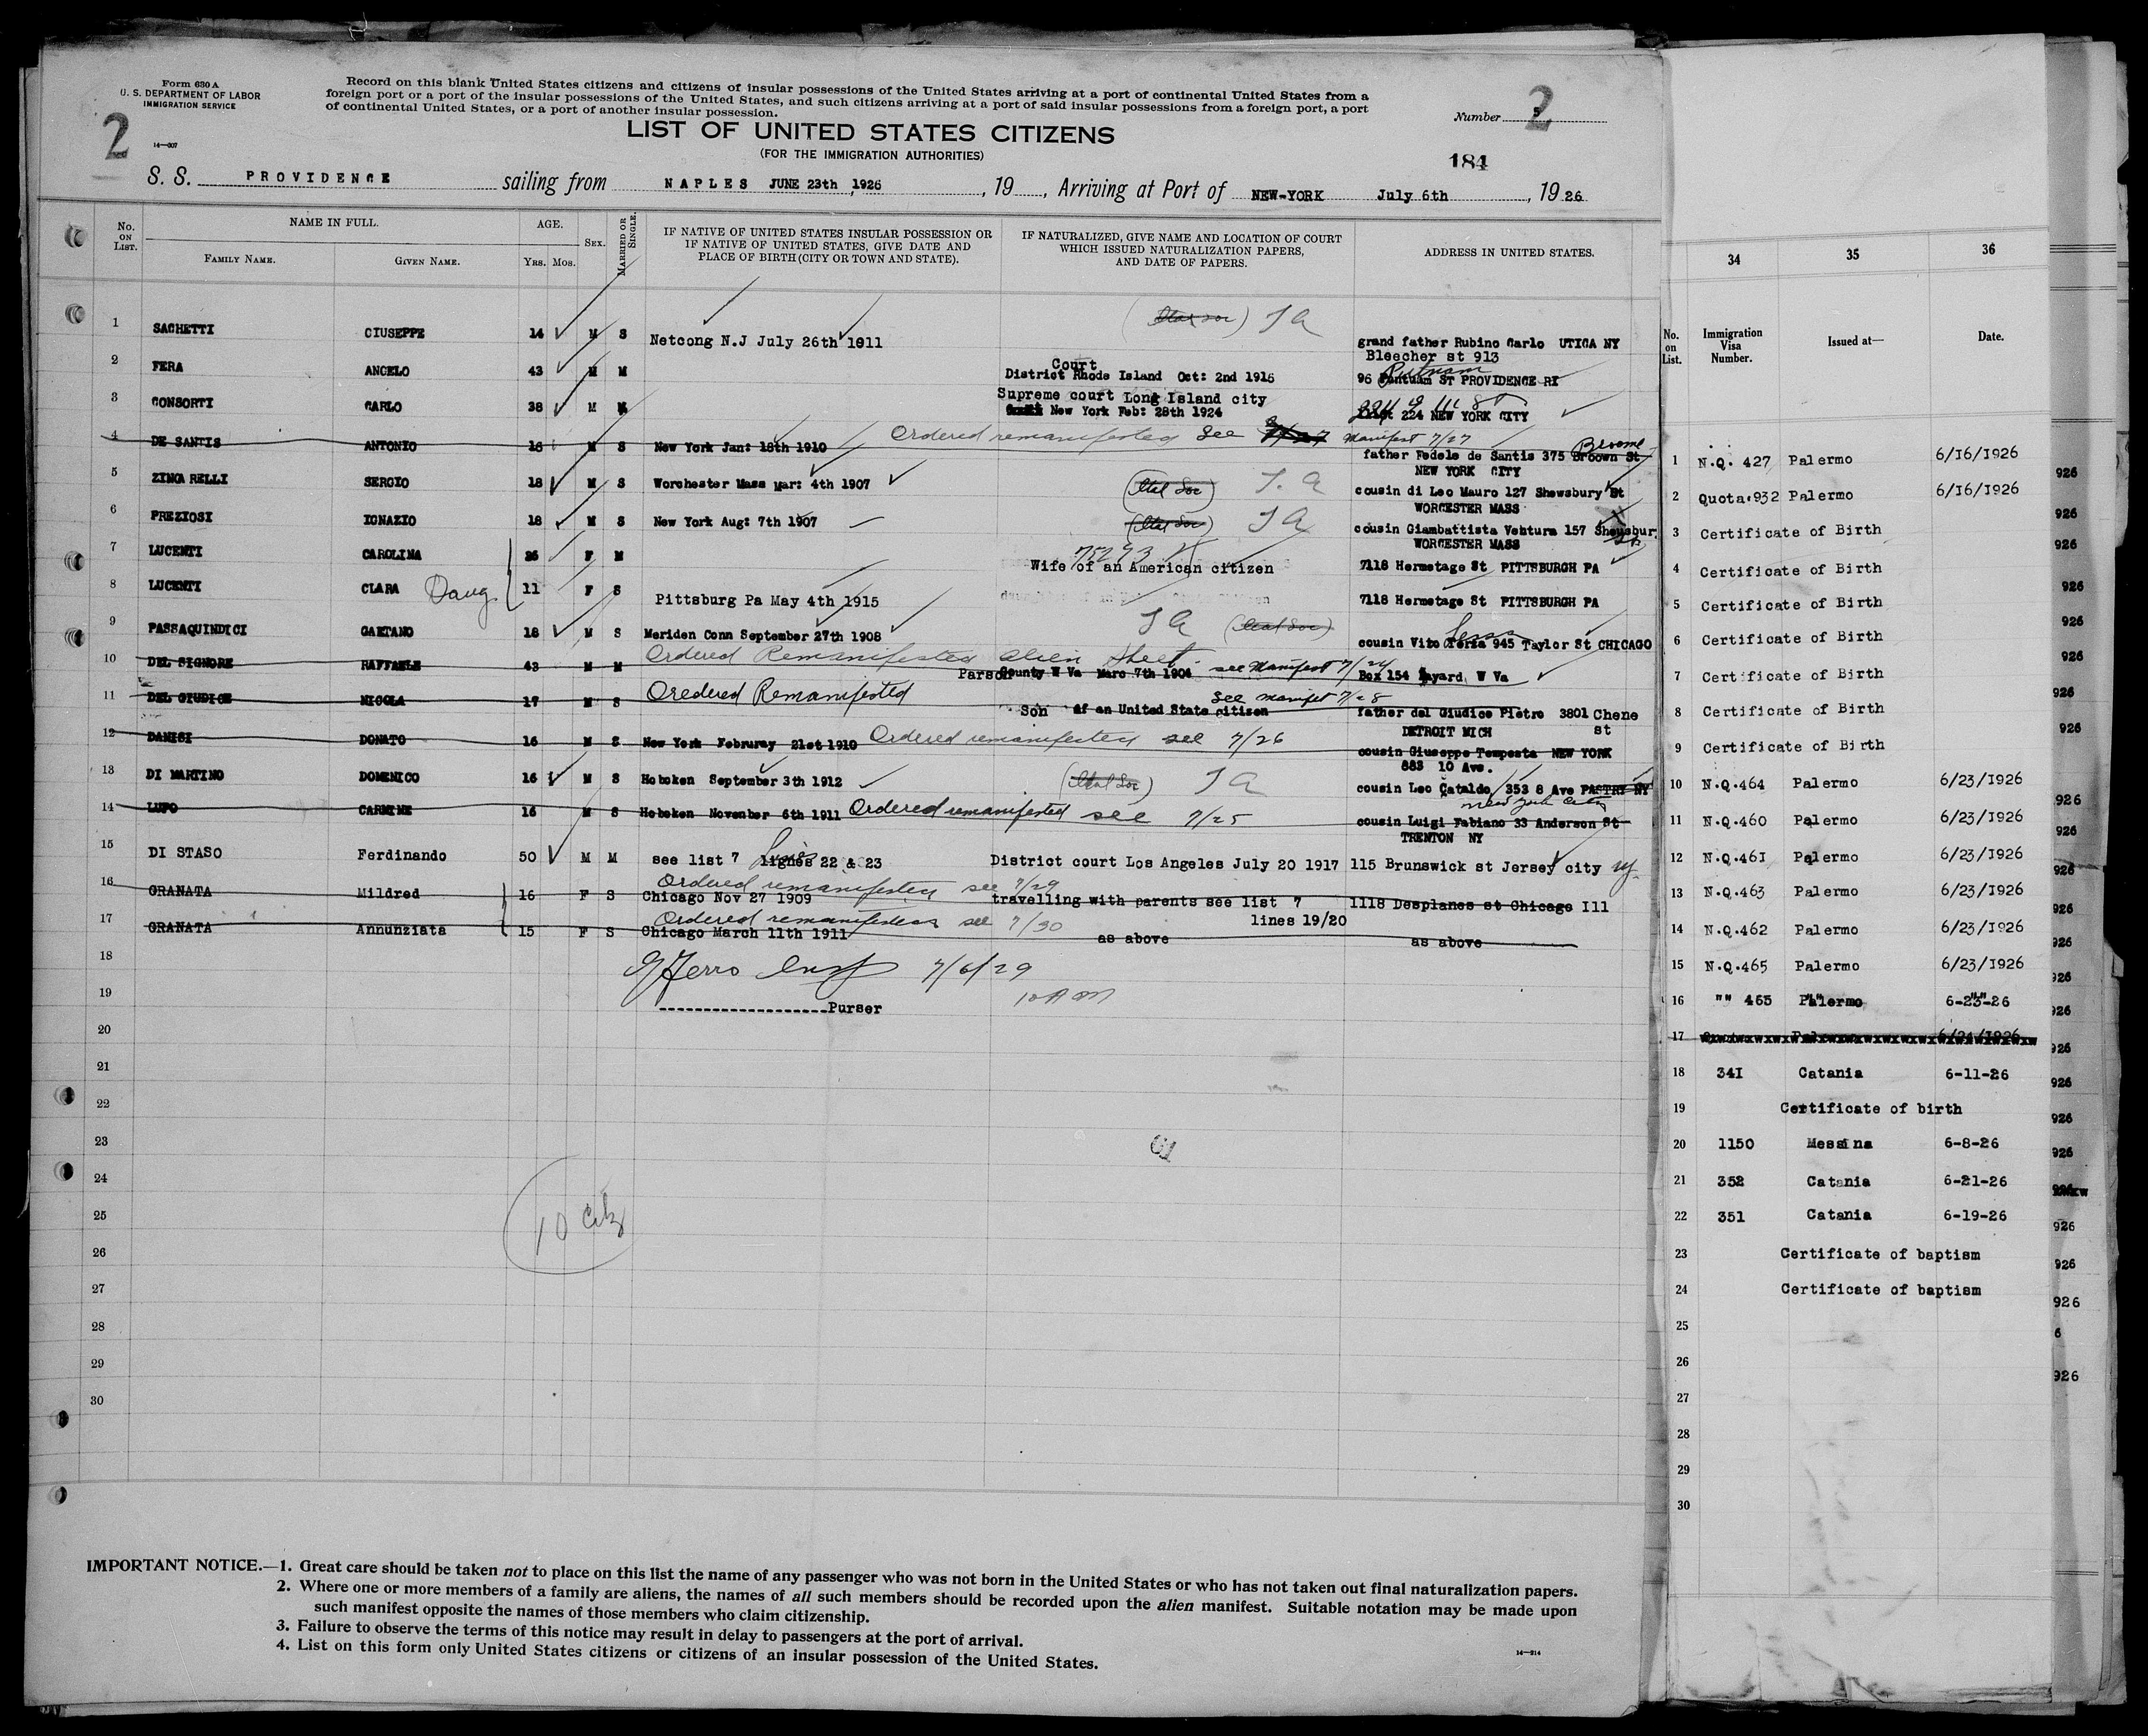 Form 630 A
U. S. DEPARTMENT OF LABOR
IMMIGRATION SERVICE
Record on this blank United States citizens and citizens of insular possessions of the United States arriving at a port of continental United States from a
foreign port or a port of the insular possessions of the United States, and such citizens arriving at a port of said insular possessions from a foreign port, a port
of continental United States, or a port of another insular possession.
Number 2
2
14—307
LIST OF UNITED STATES CITIZENS
(FOR THE IMMIGRATION AUTHORITIES)
184
S. S. PROVIDENCE sailing from NAPLES JUNE 23th, 1926, 19 , Arriving at Port of NEW-YORK July 6th, 19 26
No. ON LIST. NAME IN FULL. FAMILY NAME. GIVEN NAME. AGE. Yrs. Mos. Sex. MARRIED OR SINGLE. IF NATIVE OF UNITED STATES INSULAR POSSESSION OR IF NATIVE OF UNITED STATES, GIVE DATE AND PLACE OF BIRTH (CITY OR TOWN AND STATE). IF NATURALIZED, GIVE NAME AND LOCATION OF COURT WHICH ISSUED NATURALIZATION PAPERS, AND DATE OF PAPERS. ADDRESS IN UNITED STATES.
1 SACHETTI CIUSEPPE 14 M S Netcong N.J July 26th 1911 (Ital Soc) T A grand father Rubino Carlo UTICA NY
Bleecher st 913
2 FERA ANGELO 43 M M District Court Rhode Island Oct: 2nd 1915 96 Putnam ST PROVIDENCE RI
3 CONSORTI CARLO 38 M Supreme court Long Island city
New York Feb: 28th 1924 224 NEW YORK CITY
4 DE SANTIS ANTONIO 16 M S New York Jan: 18th 1910 Ordered remanifested see manifest 7/27
father Fedele de Santis 375 Broown St Broome
NEW YORK CITY
5 ZINGARELLI SERGIO 18 M S Worchester Mass Mar: 4th 1907 (Ital Soc) T. A cousin di Leo Mauro 127 Shewsbury St
WORCESTER MASS
6 PREZIOSI IGNAZIO 18 M S New York Aug: 7th 1907 (Ital Soc) T A cousin Giambattista Ventura 157 Shewsbur
WORCESTER MASS
7 LUCENTI CAROLINA 36 F M Wife of an American citizen 7118 Hermetage St PITTSBURGH PA
8 LUCENTI CLARA Daug 11 F S Pittsburg Pa May 4th 1915 7118 Hermetage St PITTSBURGH PA
9 PASSAQUINDICI GAETANO 18 M S Meriden Conn September 27th 1908 T A (Ital Soc) cousin Vito 945 Taylor St CHICAGO
10 DEL SIGNORE RAFFAELE 43 M M Ordered Remanifested alien sheet. see Manifest 7/24
Parson County W Va Marc 7th 1904 Box 154 Bayard W Va
11 DEL GIUDICE NICOLA 17 M S Oredered Remanifested see manifet 7/28
Son of an United State citizen father del Giudice Pietro 3801 Chene st
DETROIT MICH
12 DANISI DONATO 16 M S New York Februray 21st 1910 Ordered remanifested see 7/26
cousin Giuseppe Tempesta NEW YORK
883 10 Ave.
13 DI MARTINO DOMENICO 16 M S Hoboken September 3th 1912 (Ital Soc) T A cousin Leo Cataldo 353 8 Ave PASTRY NY
New York City
14 LUPO CARMINE 16 M S Hoboken November 6th 1911 Ordered remanifested see 7/25 cousin Luigi Fabiano 33 Anderson St
TRENTON NY
15 DI STASO Ferdinando 50 M M see list 7 lignes Lines 22 & 23 District court Los Angeles July 20 1917 115 Brunswick st Jersey city NJ
16 GRANATA Mildred 16 F S Ordered remanifested see 7/29
Chicago Nov 27 1909 travelling with parents see list 7 1118 Desplanes st Chicago Ill
lines 19/20
17 GRANATA Annunziata 15 F S Ordered remanifested see 7/30
Chicago March 11th 1911 as above as above
18 Ferro Insp 7/6/29
19 10 AM
-------------------Purser
20
21
22
23
24
25
10 Citz
26
27
28
29
30
IMPORTANT NOTICE.—1. Great care should be taken not to place on this list the name of any passenger who was not born in the United States or who has not taken out final naturalization papers.
2. Where one or more members of a family are aliens, the names of all such members should be recorded upon the alien manifest. Suitable notation may be made upon
such manifest opposite the names of those members who claim citizenship.
3. Failure to observe the terms of this notice may result in delay to passengers at the port of arrival.
4. List on this form only United States citizens or citizens of an insular possession of the United States.
14—314
34 35 36
No. on List. Immigration Visa Number. Issued at— Date.
1 N.Q. 427 Palermo 6/16/1926
2 Quota.932 Palermo 6/16/1926
3 Certificate of Birth
4 Certificate of Birth
5 Certificate of Birth
6 Certificate of Birth
7 Certificate of Birth
8 Certificate of Birth
9 Certificate of Birth
10 N.Q.464 Palermo 6/23/1926
11 N.Q.460 Palermo 6/23/1926
12 N.Q.461 Palermo 6/23/1926
13 N.Q.463 Palermo 6/23/1926
14 N.Q.462 Palermo 6/23/1926
15 N.Q.465 Palermo 6/23/1926
16 "" 465 Palermo 6-23-26
17
18 341 Catania 6-11-26
19 Certificate of birth
20 1150 Messina 6-8-26
21 352 Catania 6-21-26
22 351 Catania 6-19-26
23 Certificate of baptism
24 Certificate of baptism
25
26
27
28
29
30